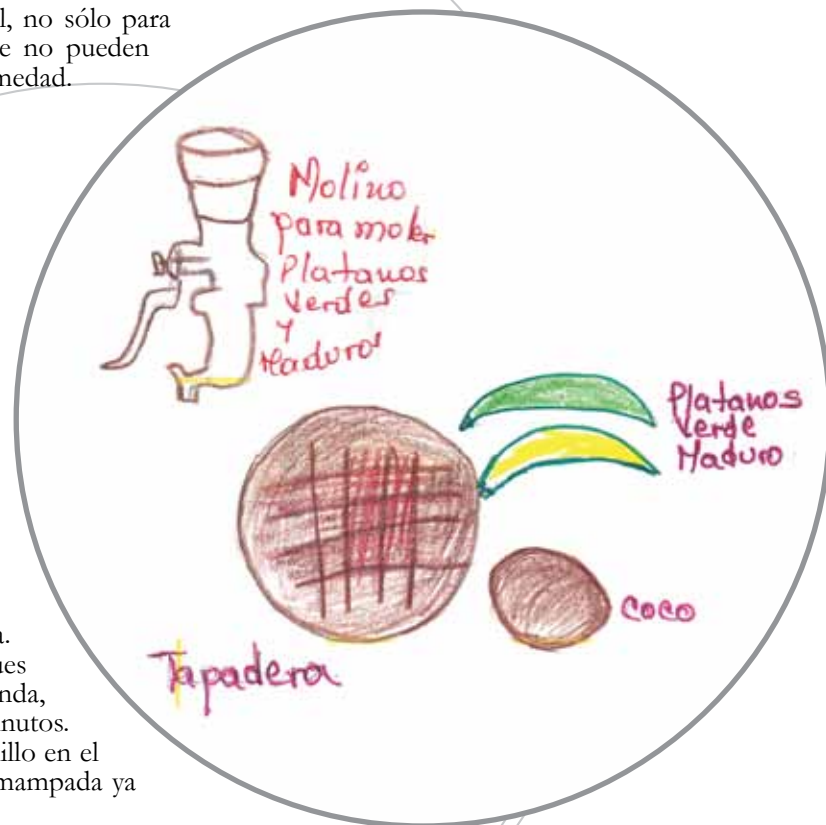 l, no sólo para
e no pueden
medad.
Molino
para moler
Platanos
Verdes
y
Maduros
Platanos
Verde
Maduro
coco
Tapadera
a.
ues
nda,
nutos.
illo en el
mampada ya